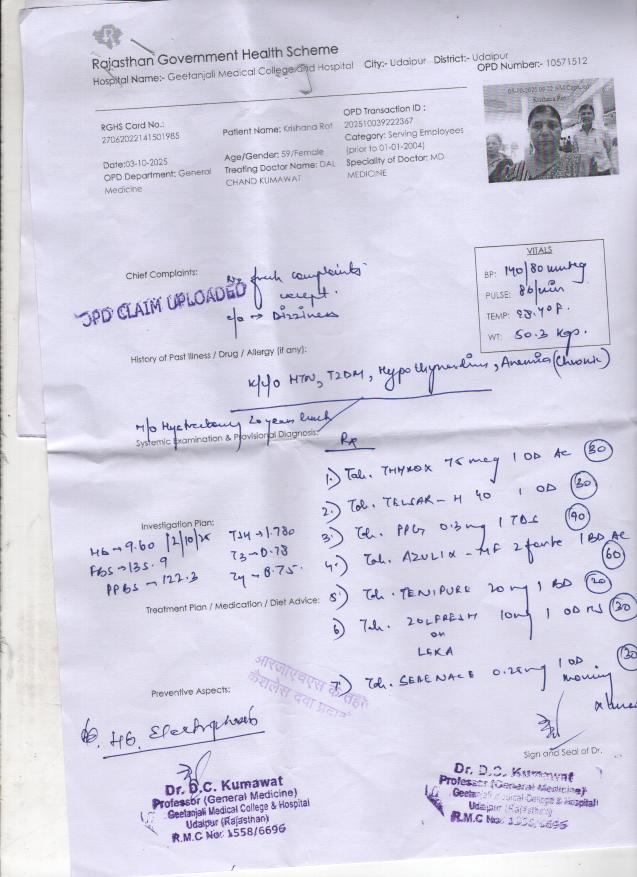 Rajasthan Government Health Scheme
Hospital Name:- Geetanjali Medical College and Hospital City:- Udaipur District:- Udaipur
OPD Number:- 10571512
RGHS Card No.:
27062022141501985
Patient Name: Krishana Rot
OPD Transaction ID :
202510039222367
Date:03-10-2025
Age/Gender: 59/Female
Category: Serving Employees
(prior to 01-01-2004)
OPD Department: General
Medicine
Treating Doctor Name: DAL
CHAND KUMAWAT
Speciality of Doctor: MD
MEDICINE
Krishana Rot
VITALS
BP: 140/80 mmHg
PULSE: 86/min
TEMP: 98.4°F.
WT: 50.3 Kgs.
Chief Complaints:
No fresh complaints
except.
c/o → Dizziness
OPD CLAIM UPLOADED
History of Past Illness / Drug / Allergy (if any):
K/C/O HTN, T2DM, Hypothyroidism, Anemia (Chronic)
H/O Hysterectomy 20 years back
Systemic Examination & Provisional Diagnosis:
Rx
1.) Tab. THYROX 75 mcg 1 OD AC (30)
2.) Tab. TELSAR-H 40 1 OD (30)
3.) Tab. PPG 0.3 mg 1 TDS (90)
4.) Tab. AZULIX-MF 2 forte 1 BD AC (60)
5) Tab. TENIPURE 20 mg 1 BD (20)
6) Tab. ZOLFRESH 10mg 1 OD HS (30)
7) Tab. SERENACE 0.25mg 1 OD morning (30)
Investigation Plan:
HB → 9.60 /2/10/25 TSH → 1.780
FBS → 135.9 T3 → 0.78
PPBS → 122.3 T4 → 8.75
Treatment Plan / Medication / Diet Advice:
आरजीएचएस के तहत
कैशलेस दवा
Preventive Aspects:
Hb. Electrophoresis
Sign and Seal of Dr.
Dr. D.C. Kumawat
Professor (General Medicine)
Geetanjali Medical College & Hospital
Udaipur (Rajasthan)
R.M.C No. 1558/6696
Dr. D.C. Kumawat
Professor (General Medicine)
Geetanjali Medical College & Hospital
Udaipur (Rajasthan)
R.M.C No. 1558/6696